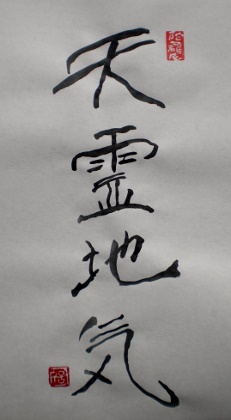 天霊地気